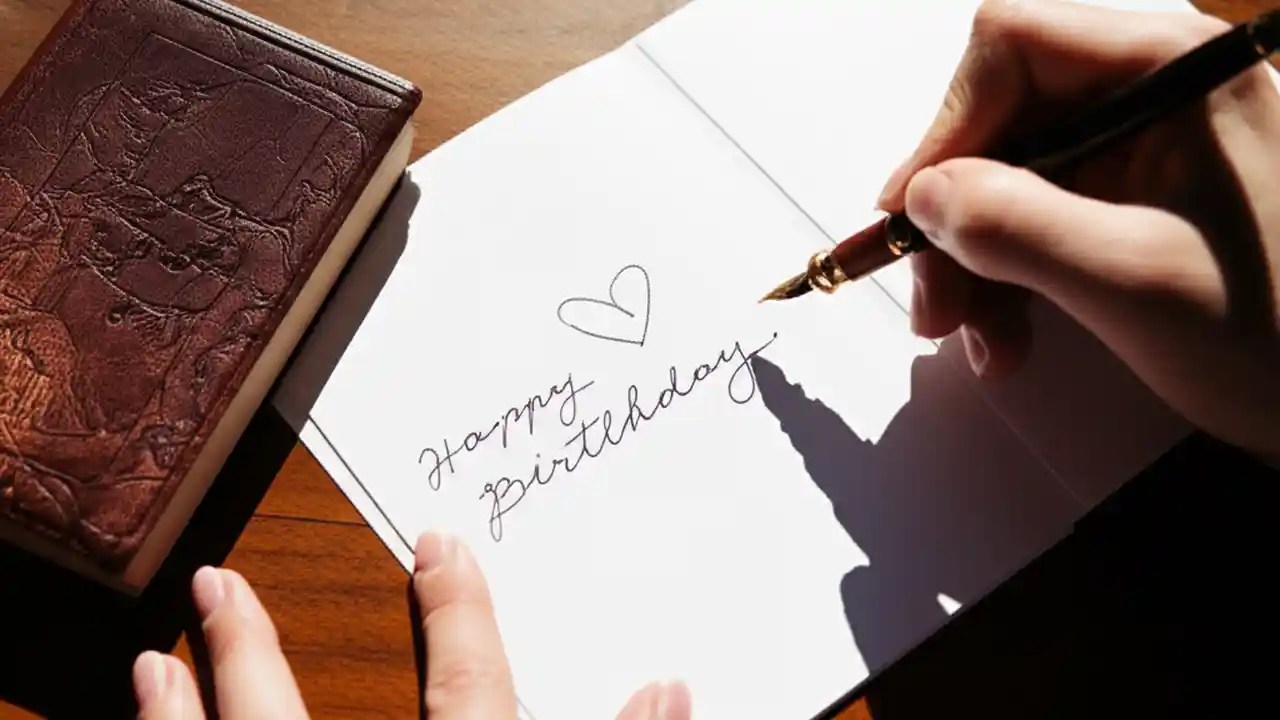 Happy
Birtlhday.